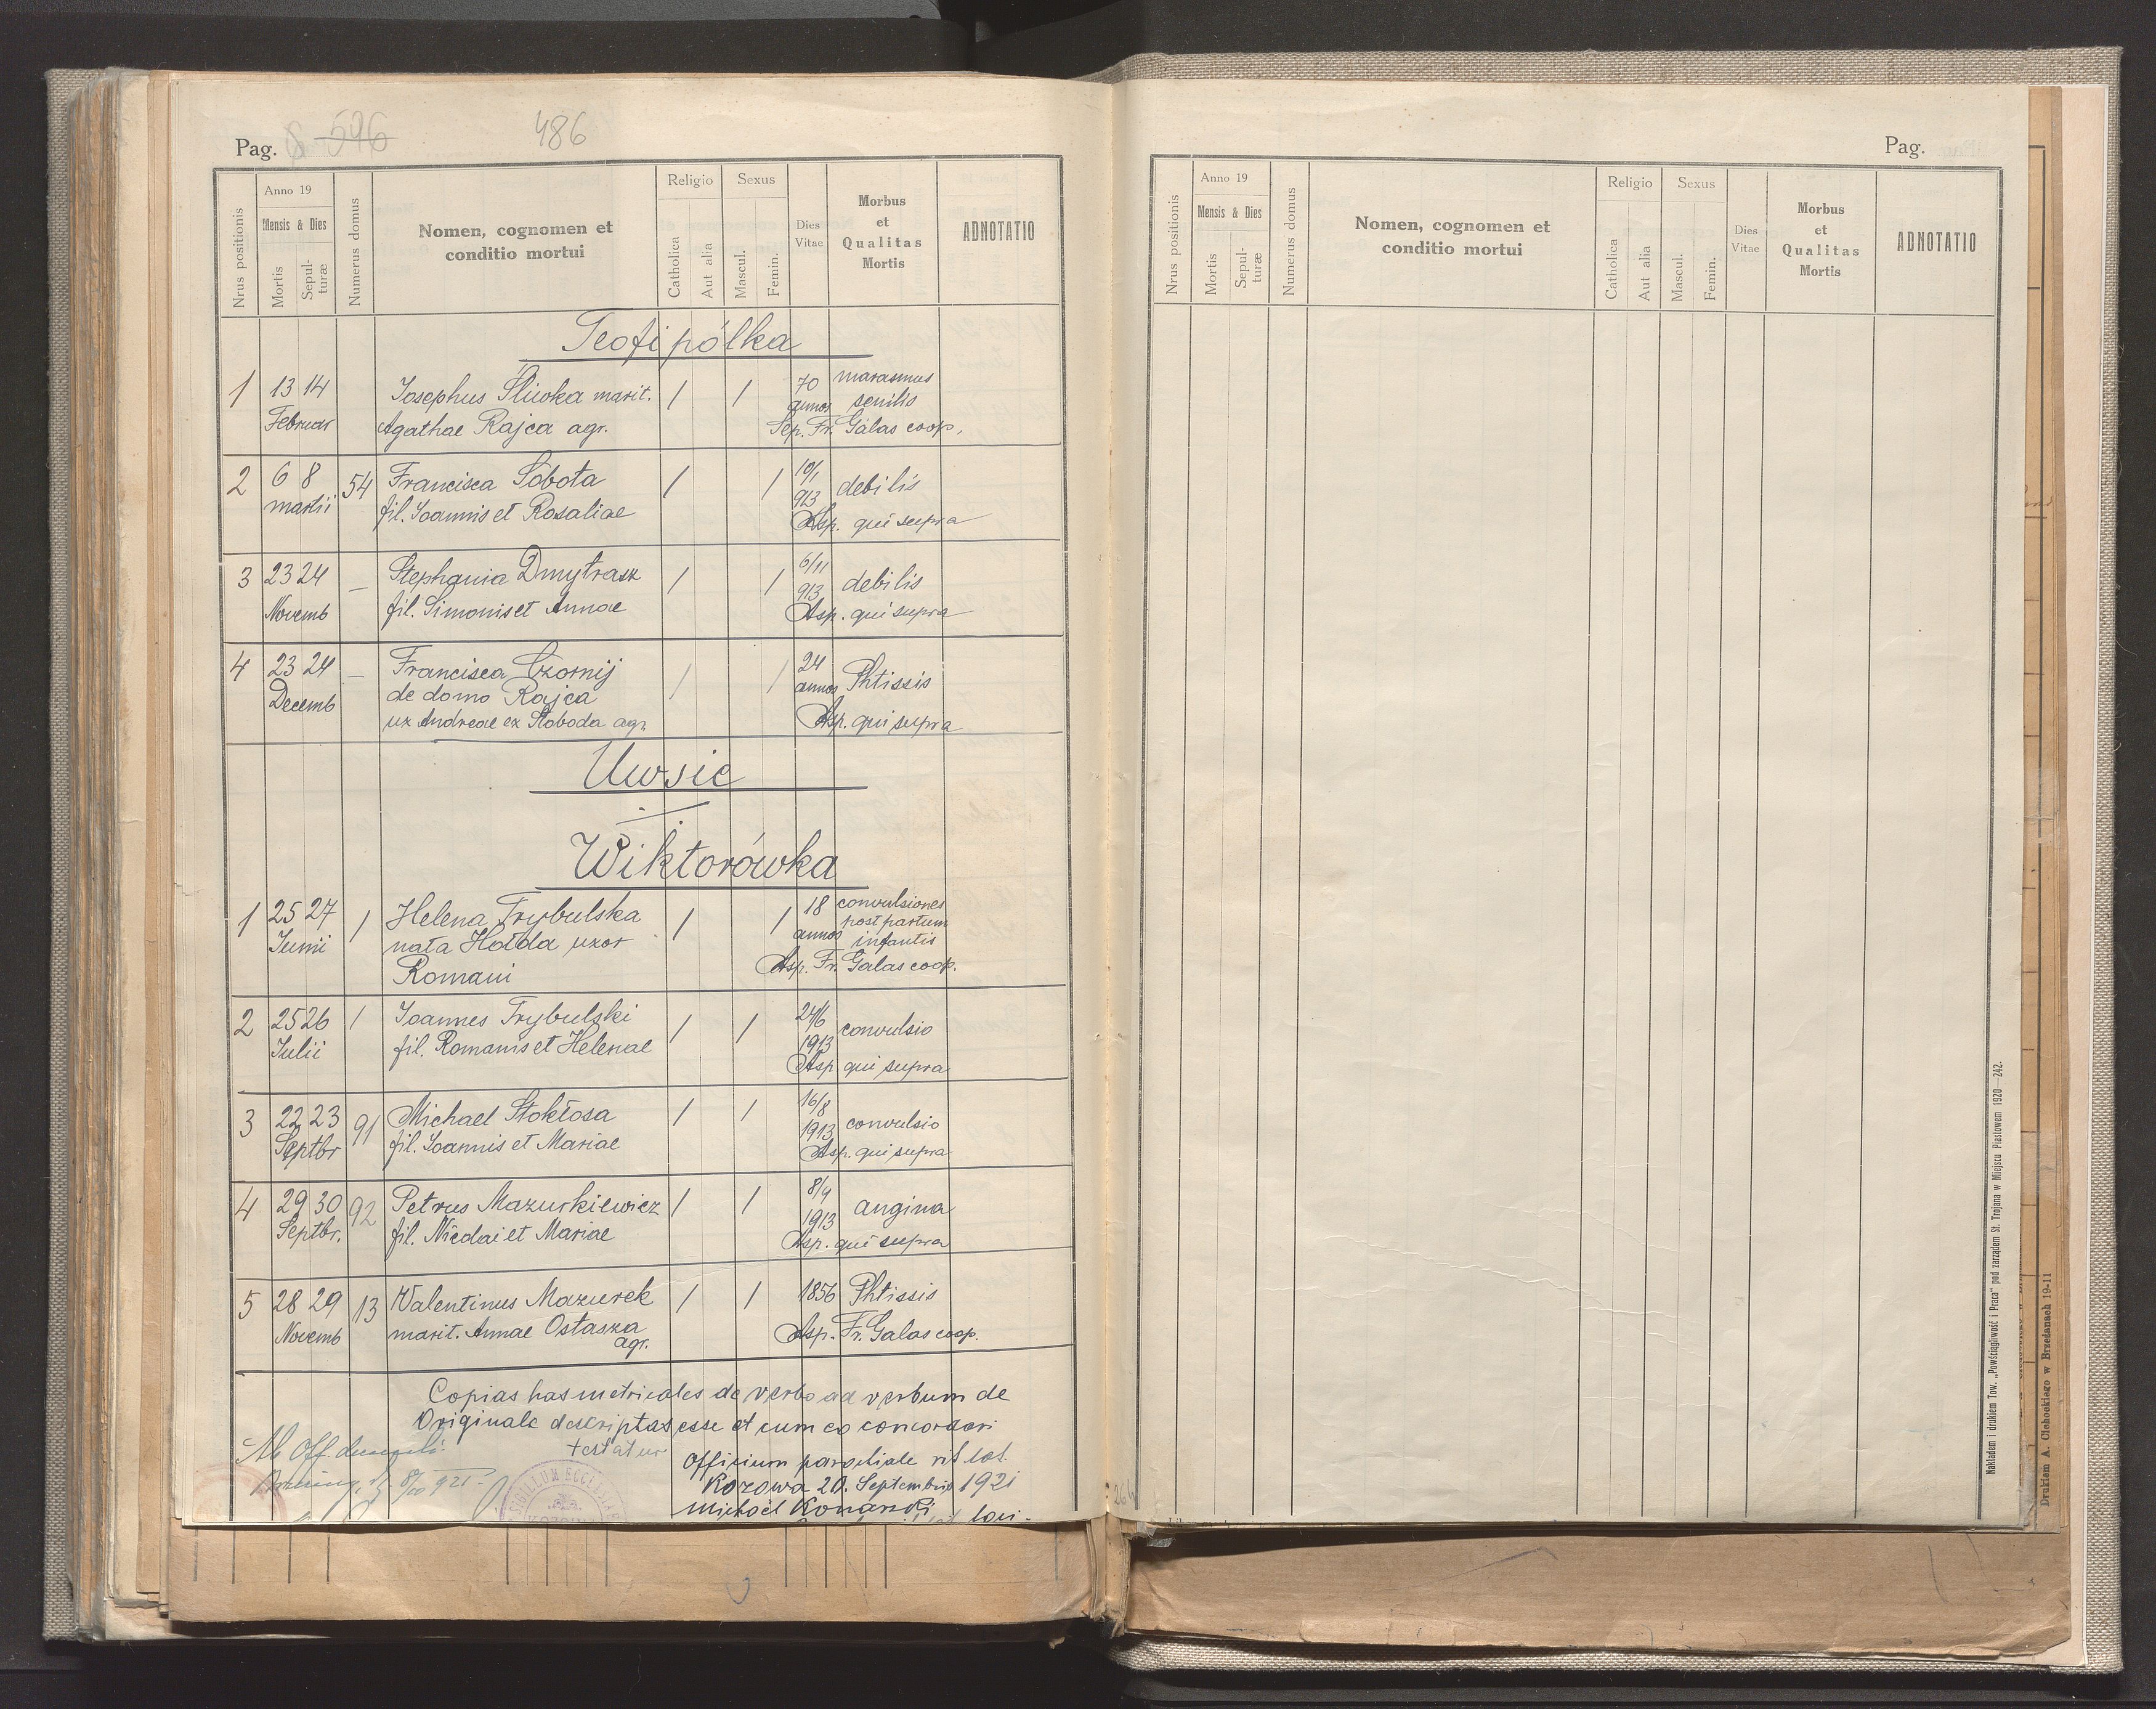 Pag. 596 486
Nrus positionis
Anno 19
Mensis & Dies
Mortis
Sepulturæ
Numerus domus
Nomen, cognomen et
conditio mortui
Religio
Catholica
Aut alia
Sexus
Mascul.
Femin.
Dies
Vitae
Morbus
et
Qualitas
Mortis
ADNOTATIO
Teofipólka
1 13 14 Josephus Śliwka marit. / / 70 marasmus
Februar Agathae Rajca agr. annos senilis
Sep. Fr. Galas coop.
2 6 8 54 Francisca Sobota / / 10/1 debilis
martii fil. Joannis et Rosaliae 913
Asp. qui supra
3 23 24 — Stephania Dmytrasz / / 6/11 debilis
Novemb fil. Simonis et Annae 913
Asp. qui supra
4 23 24 — Francisca Czornij / / 24 Phtissis
Decemb de domo Rajca annos
ux Andreae ex Słoboda agr. Asp. qui supra
Uwsie
Wiktorówka
1 25 27 1 Helena Trybulska / / 18 convulsiones
Junii nata Hołda uxor annos post partum
infantis
Romani Asp. Fr. Galas coop.
2 25 26 1 Joannes Trybulski / / 24/6 convulsio
Julii fil. Romanis et Helenae 1913
Asp qui supra
3 22 23 91 Michael Stokłosa / / 16/8 convulsio
Septbr fil. Joannis et Mariae 1913
Asp. qui supra
4 29 30 92 Petrus Mazurkiewicz / / 8/9 angina
Septbr. fil. Nicolai et Mariae 1913
Asp. qui supra
5 28 29 13 Valentinus Mazurek / / 1856 Phtissis
Novemb marit. Annae Ostasza
agr. Asp. Fr. Galas coop.
Copias has metricales de verbo ad verbum de
Originale descriptas esse et cum eo concordari
testatur
Officium parochiale rit lat.
Kozowa 20. Septembris 1921
Michael Konarski
Ab Off.
SIGILLUM ECCLESIAE
Pag.
Nrus positionis
Anno 19
Mensis & Dies
Mortis
Sepulturæ
Numerus domus
Nomen, cognomen et
conditio mortui
Religio
Catholica
Aut alia
Sexus
Mascul.
Femin.
Dies
Vitae
Morbus
et
Qualitas
Mortis
ADNOTATIO
Nakładem i drukiem Tow. „Powściągliwość i Praca" pod zarządem St. Trojana w Miejscu Piastowem 1920—242.
Drukiem A. Cichockiego w Brzeżanach 19-11